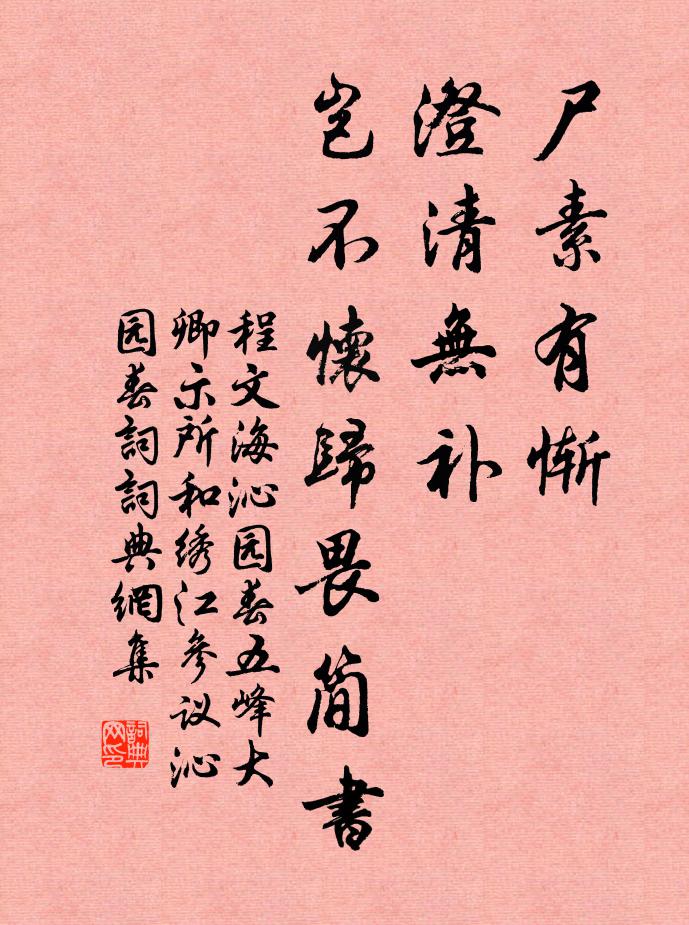 尸素有惭
澄清無补
岂不懷歸畏简書
程文海沁园春五峰大
卿示所和绣江参议沁
园春詞詞典網集
詞典
网印